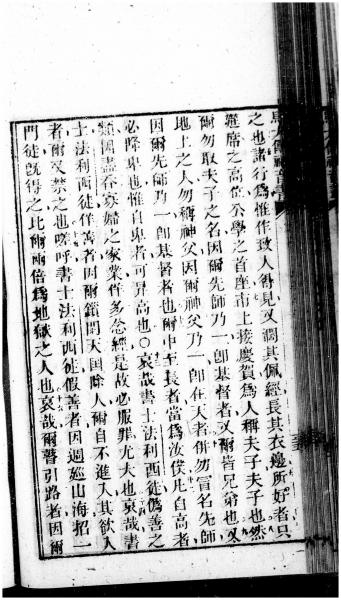 之也諸行爲惟作致人得見又濶其佩經長其衣邊所好者只
筵席之高位公學之首座市上接慶賀爲人稱夫子夫子也然
爾勿取夫子之名因爾先師乃一卽基督者又爾皆兄弟也又
地上之人勿稱神父因爾神父乃一卽在天者併勿冒名先師
因爾先師乃一卽基督者也爾中至長者當爲汝僕凡自高者
必降卑也惟自卑者可昇高也○哀哉書士法利西徒僞善之
類因盡吞寡婦之家業佯多念經是故必服罪尤大也哀哉書
士法利西徒佯善者因爾鎖閉天國除人爾自不進入其欲入
者爾又禁之也嗟呼書士法利西徒假善者因週巡山海招一
門徒旣得之比爾兩倍爲地獄之人也哀哉爾瞽引路者因爾